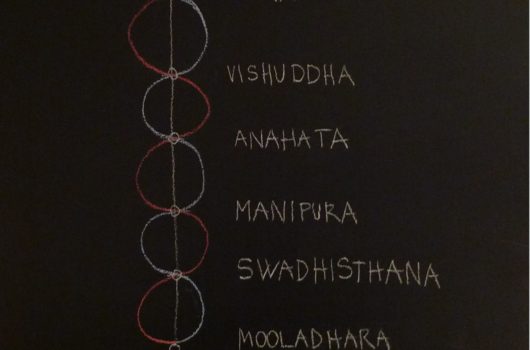 VISHUDDHA
ANAHATA
MANIPURA
SWADHISTHANA
MOOLADHARA